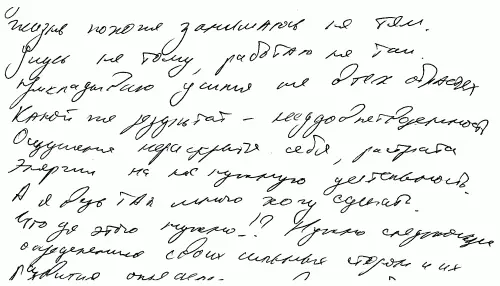 жизнь похоже занимаюсь не тем.
Учусь не тому, работаю не там.
Прикладываю усилия не в тех областях
Какой же результат – неудовлетворенность
Ощущение нераскрытия себя, растрата
Энергии на не нужную деятельность.
А я ведь так много хочу сделать.
Что для этого нужно!? Нужно следующее
определение своих сильных сторон и их
развития